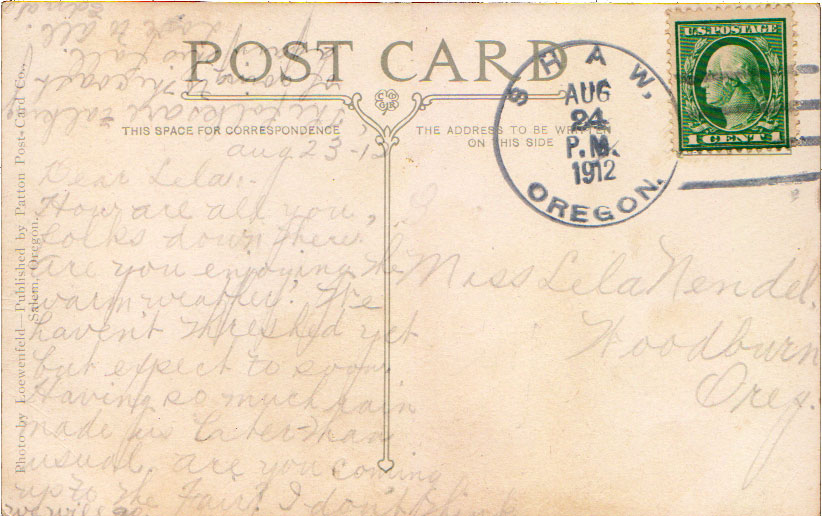 POST CARD
THIS SPACE FOR CORRESPONDENCE
THE ADDRESS TO BE WRITTEN
ON THIS SIDE
SHAW,
AUG
24
P.M.
1912
OREGON.
U.S. POSTAGE
1 CENT 1
Photo by Loewenfeld—Published by Patton Post-Card Co.,
Salem, Oregon.
Aug 23-12
Dear Lela:-
How are all you,
folks down there.
Are you enjoying the
warm weather? We
haven't threshed yet
but expect to soon
Having so much rain
made us later than
usual. are you coming
up to the Fair? I don't think
the folks are talking
of going to the coast
this fall.
Love to all
Edna
Miss Lela Nendel.
Woodburn
Oreg.